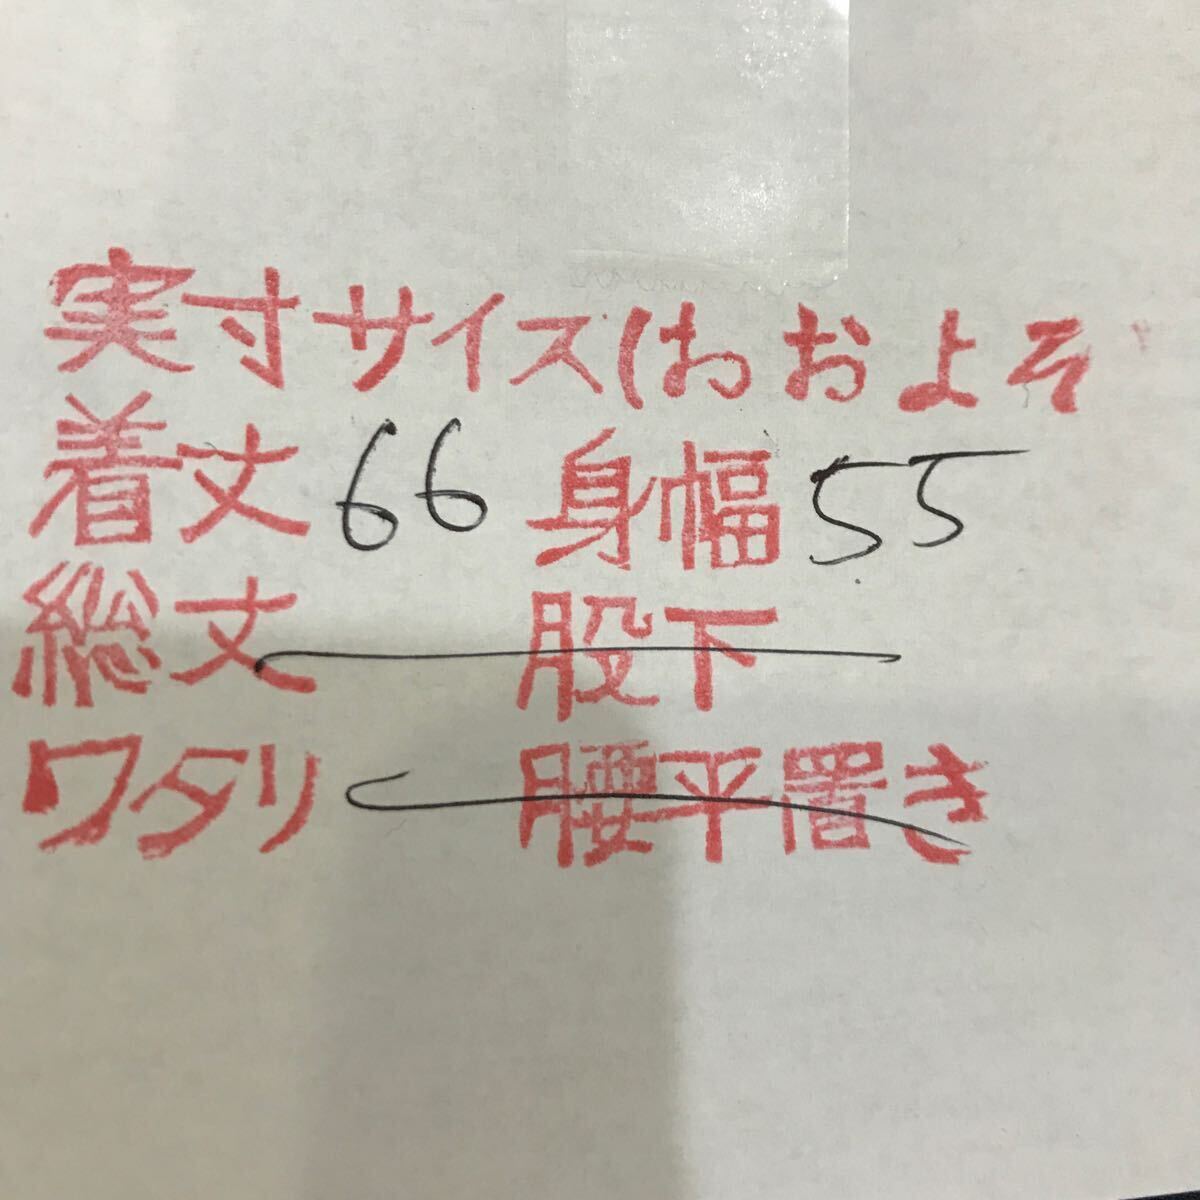 実寸サイズ(おおよそ
着丈 66 身幅 55
総丈 股下
ワタリ 腰平置き